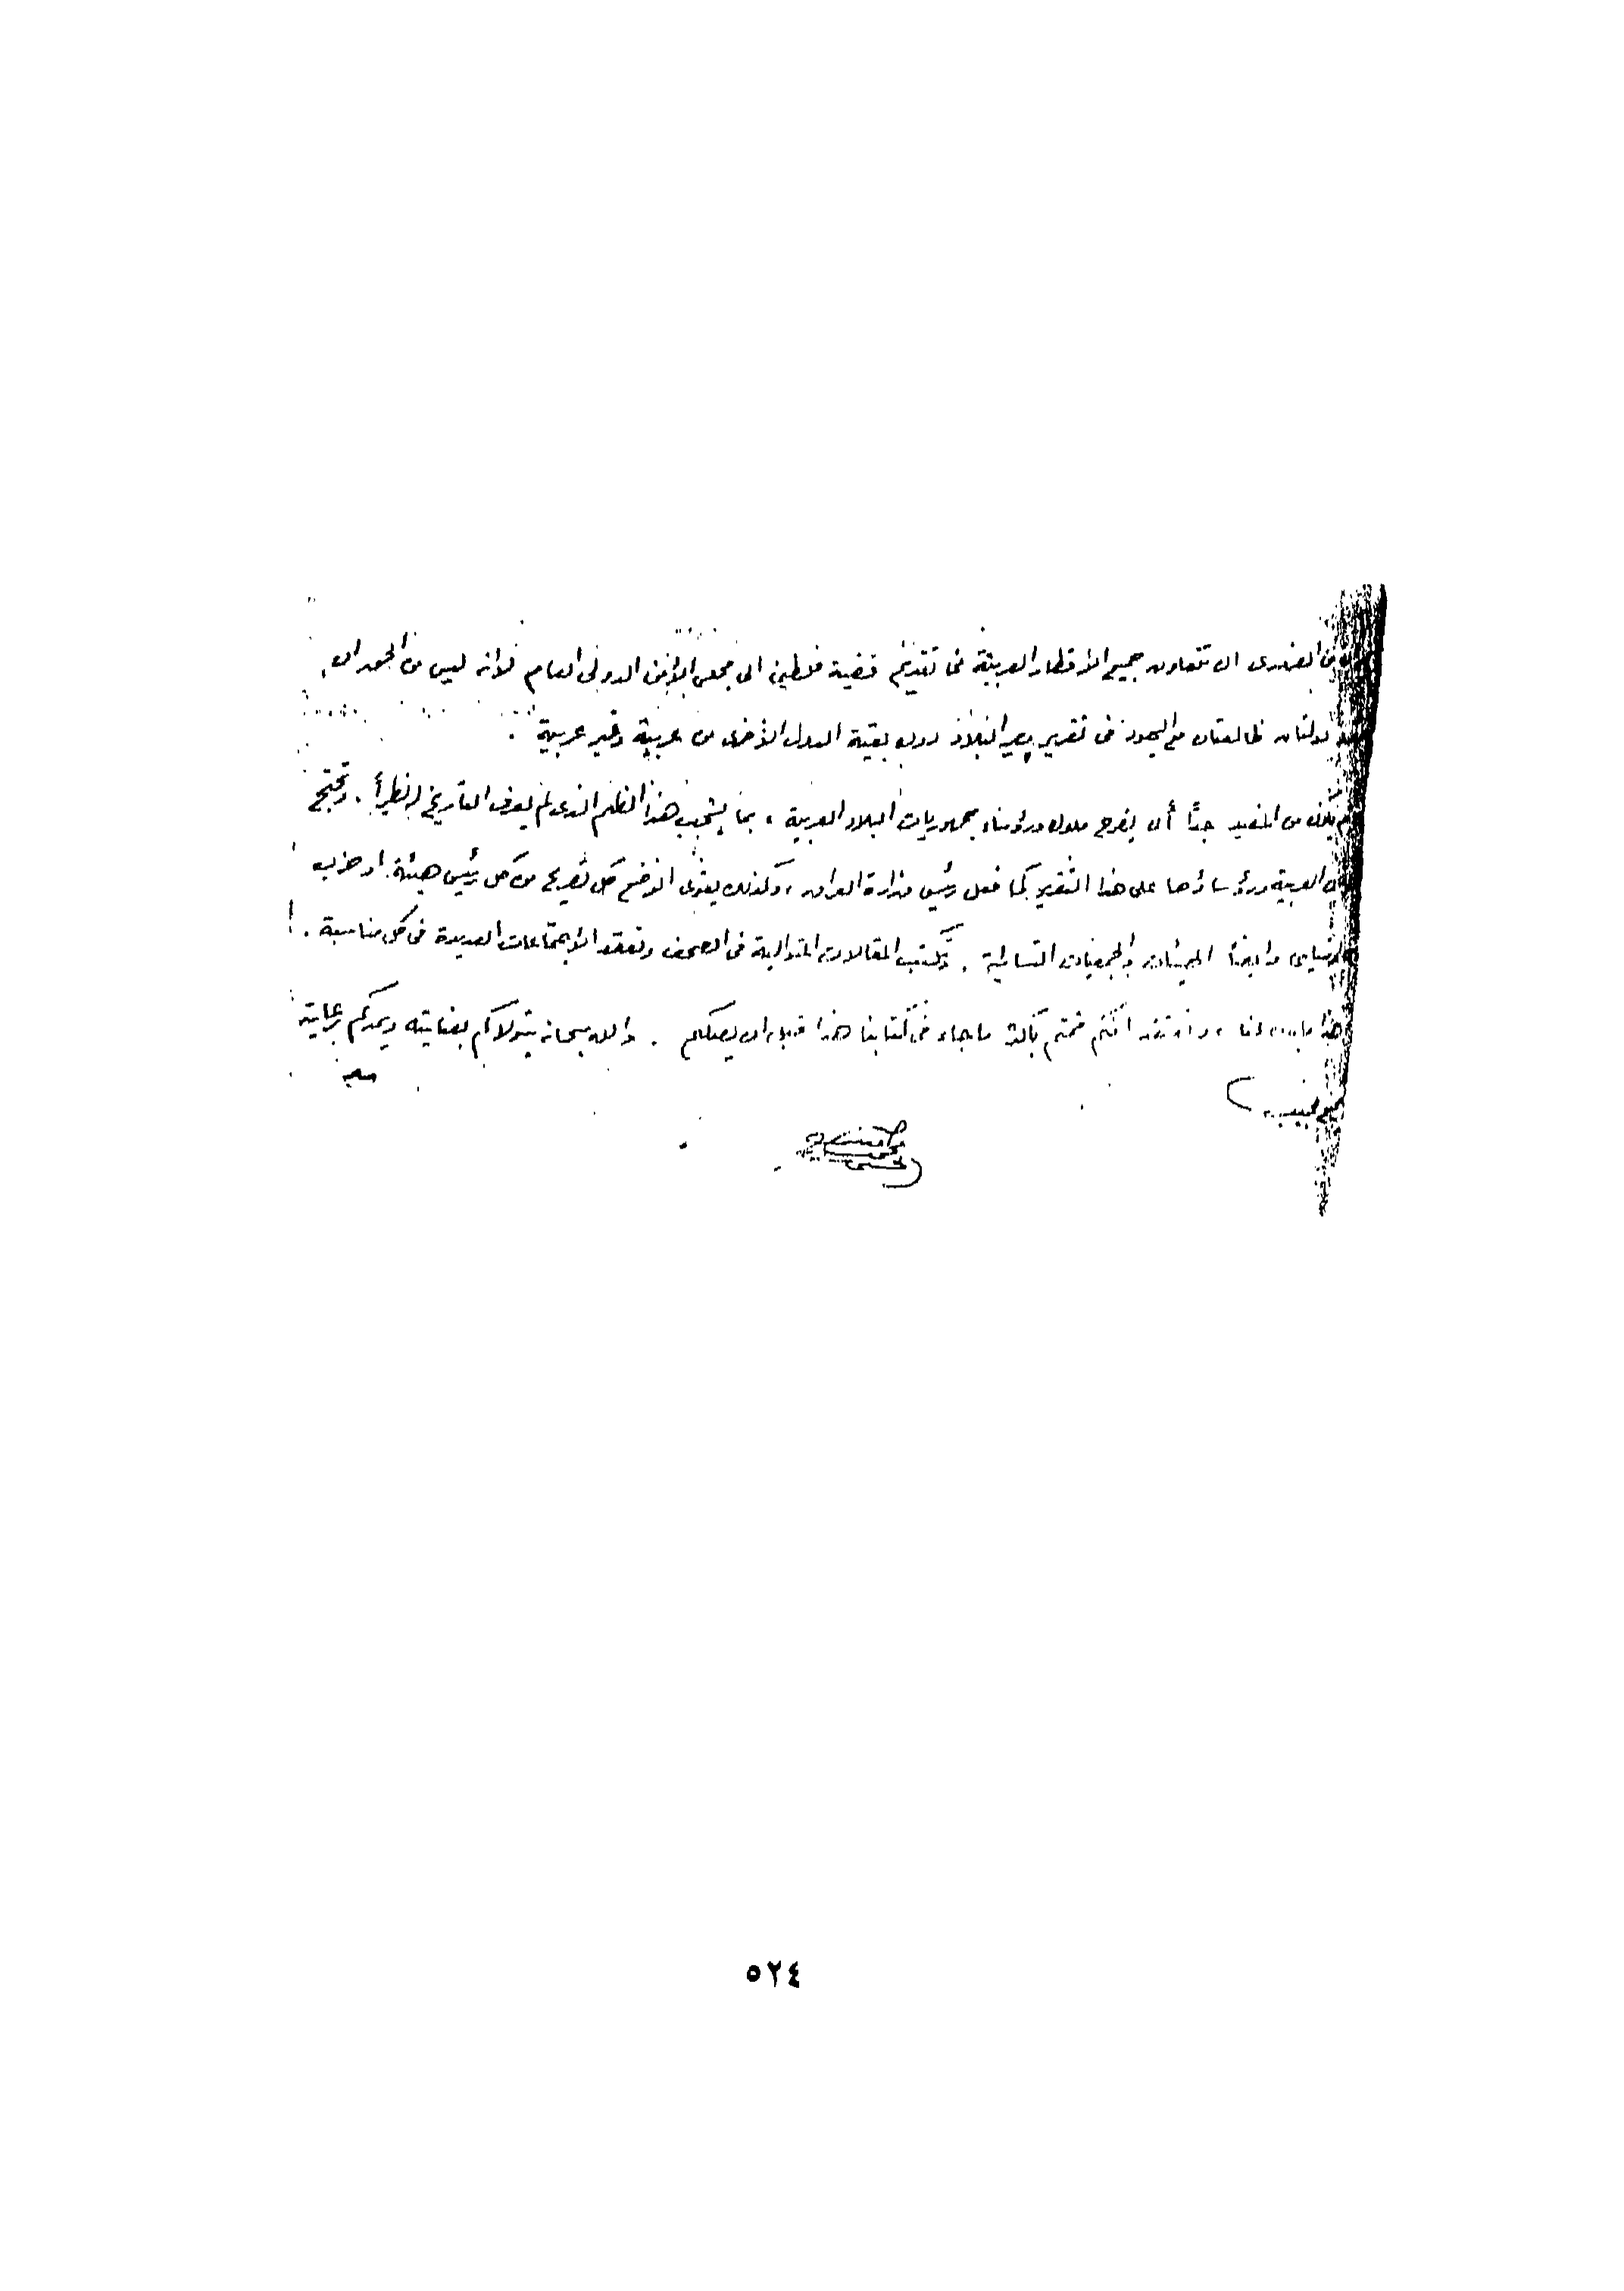 من الضرورى ان تتعاون جميع الأقطار العربية فى تقديم قضية فلسطين الى مجلس الأمن الدولى العام لأنه ليس من الحق ان
دولتان ظالمتان مع اليهود فى تقرير مصير البلاد دون بقية الدول الأخرى من عربية وغير عربية .
من المفيد جدًا أن يصرح ملوك ورؤساء جمهوريات البلاد العربية ، بما يشجب هذا الظلم الذى لم يعرف التاريخ له نظيرًا . وتحتج
العربية ورؤساؤها على هذا التقرير كما فعل رئيس وزارة العراق ، وكذلك يقوى الوضع كل تصريح من كل رئيس هيئة او حزب
سياسى وايضًا الهيئات والجمعيات النسائية . وتكتب المقالات المتوالية فى الصحف وتعقد الاجتماعات العديدة فى كل مناسبة .
هذا ما لنا ، ونعتقد انكم قمتم بأكثر ما جاء فى كتابنا هذا قبل ان يصلكم . والله سبحانه يتولاكم بعنايته ويمدكم برعايته
محمد امين الحسينى
٥٢٤